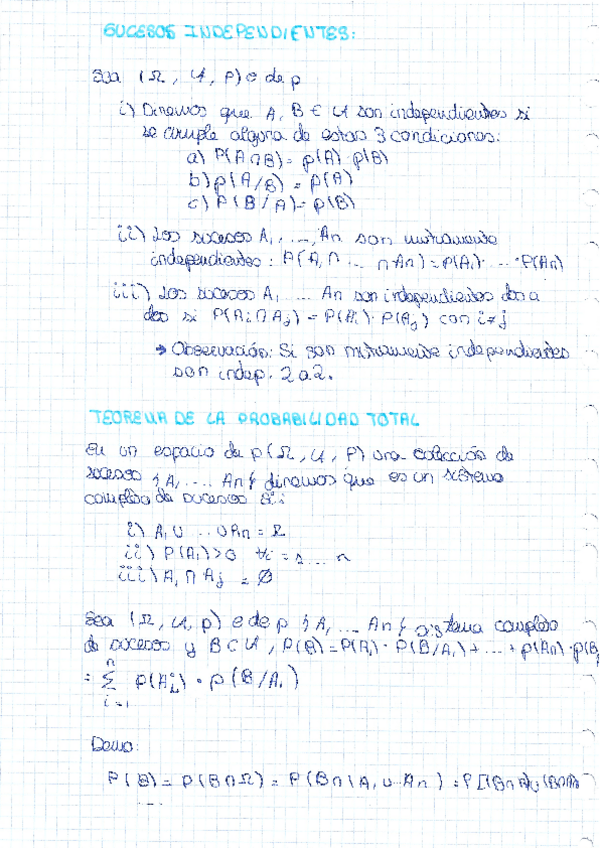 SUCESOS INDEPENDIENTES:
Sea (Ω, U, P) e de p
i) Diremos que A, B ∈ U son independientes si
se cumple alguna de estas 3 condiciones:
a) P(A∩B) = p(A)·p(B)
b) p(A/B) = p(A)
c) P(B/A) = p(B)
ii) Los sucesos A₁, ..., An son mutuamente
independientes: P(A₁∩ ... ∩An) = P(A₁)· ... ·P(An)
iii) Los sucesos A₁ ... An son independientes dos a
dos si P(Ai∩Aj) = P(Ai)·P(Aj) con i≠j
→ Observación: Si son mutuamente independientes
son indep. 2 a 2.
TEOREMA DE LA PROBABILIDAD TOTAL
En un espacio de p (Ω, U, P) una colección de
sucesos {A₁ .... An} diremos que es un sistema
completo de sucesos si:
i) A₁∪ ...∪An = Ω
ii) P(Ai)>0 ∀i = 1... n
iii) Ai ∩ Aj = Ø
Sea (Ω, U, p) e de p {A₁ ... An} sistema completo
de sucesos y B ⊂ U, P(B) = P(A₁)· P(B/A₁) + ... + p(An)·p(B
= Σ p(Ai)·p(B/Ai)
n
i=1
Demo:
P(B) = p(B∩Ω) = P(B∩(A₁∪...An) = P[(B∩A₁)∪(B∩A
....